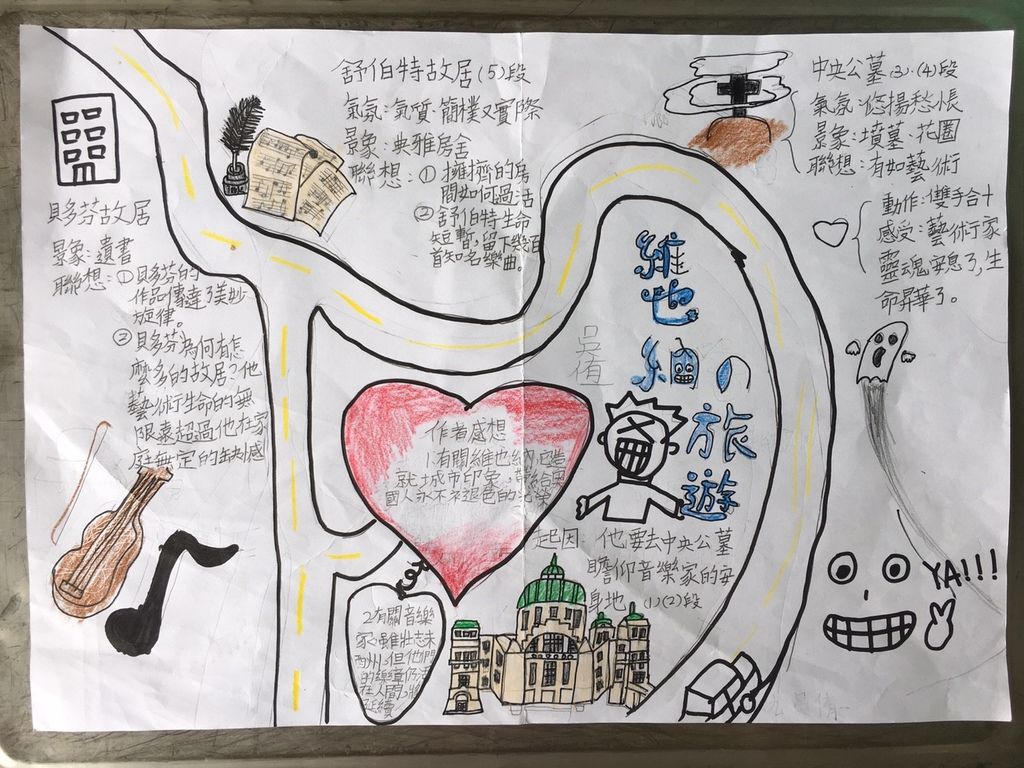 舒伯特故居(5)段
氣氛:氣質簡樸又實際
景象:典雅房舍
聯想:①擁擠的房
間如何過活
②舒伯特生命
短暫,留下幾百
首知名樂曲。
中央公墓(3)、(4)段
氣氛:悠揚愁悵
景象:墳墓、花圈
聯想:有如藝術
動作:雙手合十
感受:藝術家
靈魂安息了,生
命昇華了。
貝多芬故居
景象:遺書
聯想:①貝多芬的
作品傳達了美妙
旋律。
②貝多芬為何有怎
麼多的故居?他
藝術生命的無
限遠超過他在家
庭無定的缺憾
維也納的旅遊
作者感想
1.有關維也納:已造
就城市印象,帶給
國人永不褪色的光榮
起因:他要去中央公墓
瞻仰音樂家的安
身地 (1)(2)段
2.有關音樂
家:雖壯志未
酬,但他們
的樂曲仍活
在人間,
延續
YA!!!